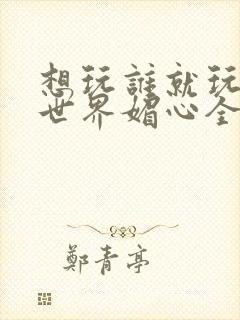 想玩誰就玩
世界媚心全
鄭青亭